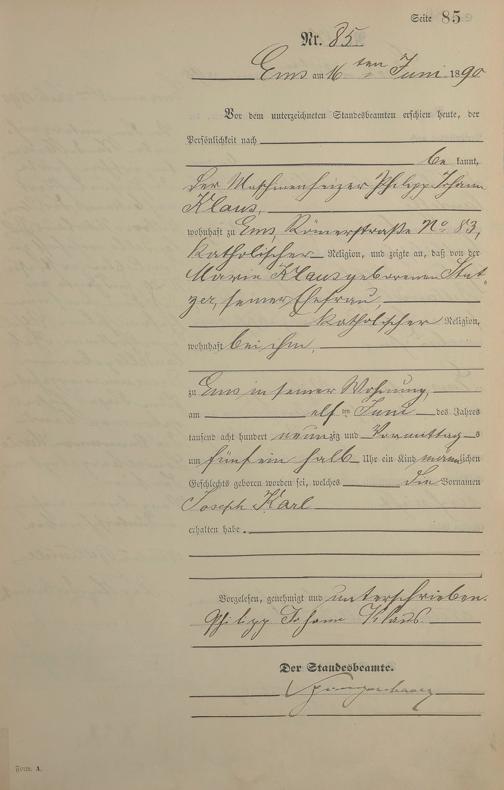 Seite 85
Nr. 85.
Ems am 16ten Juni 1890
Vor dem unterzeichneten Standesbeamten erschien heute, der
Persönlichkeit nach
be kannt,
der Maschinenheizer Philipp Johann
Klaus,
wohnhaft zu Ems, Römerstraße No 83,
katholischer Religion, und zeigte an, daß von der
Marie Klaus geborenen Stat-
zer, seiner Ehefrau,
katholischer Religion,
wohnhaft bei ihm,
zu Ems in seiner Wohnung,
am elften Juni des Jahres
tausend acht hundert neunzig und Vormittags
um fünf ein halb Uhr ein Kind männlichen
Geschlechts geboren worden sei, welches die Vornamen
Joseph Karl
erhalten habe.
Vorgelesen, genehmigt und unterschrieben.
Philipp Johann Klaus
Der Standesbeamte.
Form. A.